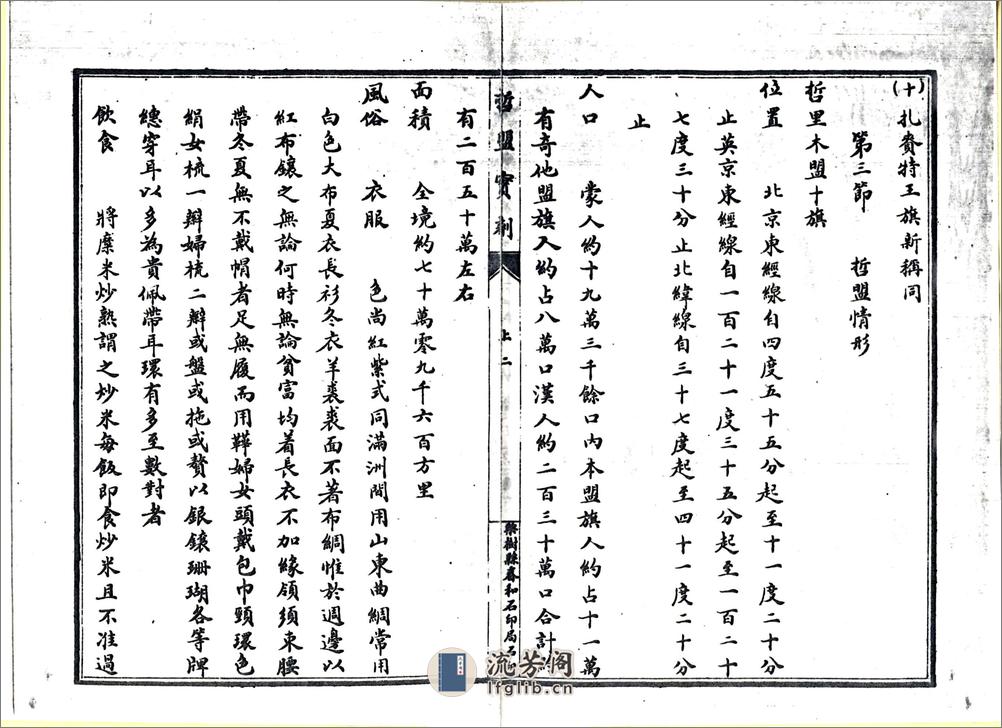 (十)扎賚特王旗新稱同
第三節 哲盟情形
哲里木盟十旗
位置 北京東經線自四度五十五分起至十一度二十分
止英京東經線自一百二十一度三十五分起至一百二十
七度三十分止北緯線自三十七度起至四十一度二十分
止
人口 蒙人約十九萬三千餘口內本盟旗人約占十一萬
有奇他盟旗入約占八萬口漢人約二百三十萬口合計約
哲盟實剂
上 二
梨樹縣春和石印局石印
有二百五十萬左右
面積 全境約七十萬零九千六百方里
風俗 衣服 色尚紅紫式同滿洲間用山東曲綢常用
白色大布夏衣長衫冬衣羊裘裘面不著布綢惟於週邊以
紅布鑲之無論何時無論貧富均着長衣不加緣領須束腰
帶冬夏無不戴帽者足無履而用鞾婦女頭戴包巾頸環色
絹女梳一辮婦梳二辮或盤或拖或贅以銀鑲珊瑚各等牌
總穿耳以多為貴佩帶耳環有多至數對者
飲食 將糜米炒熟謂之炒米每飯即食炒米且不准過
流芳阁
lfglib.cn